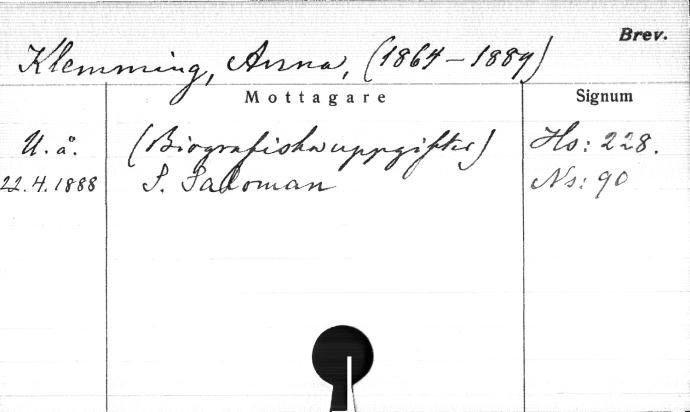 Brev.
Klemming, Anna, (1864-1889)
Mottagare Signum
U. å. (Biografiska uppgifter) Hs: 228.
22.4.1888 S. Saloman Ns: 90